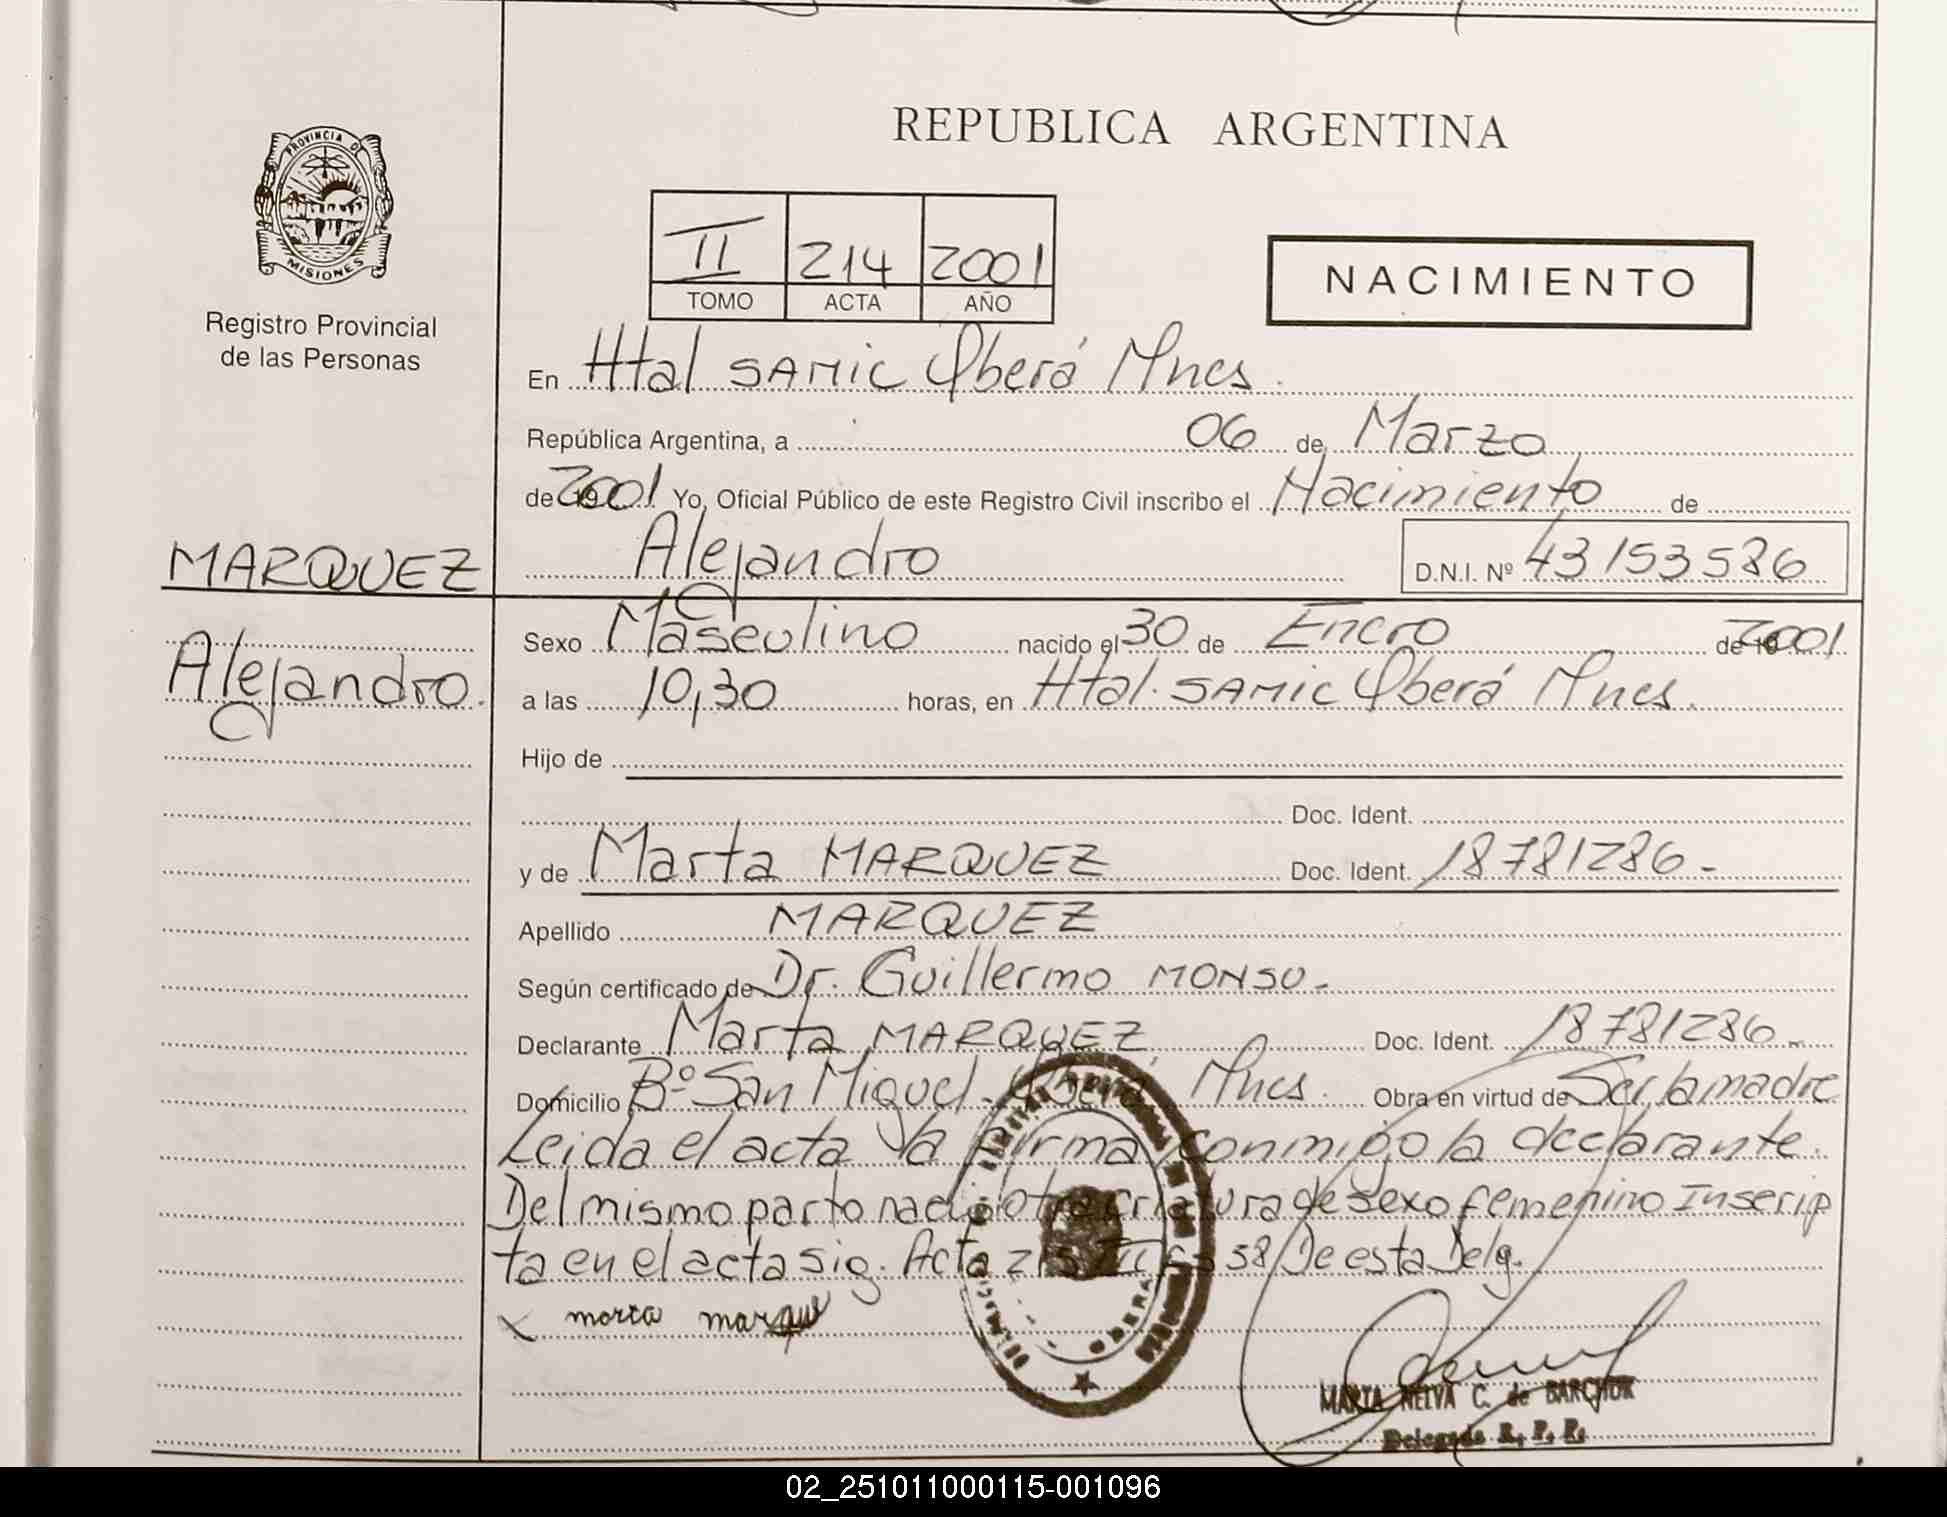 REPUBLICA ARGENTINA
PROVINCIA DE
MISIONES
Registro Provincial
de las Personas
II 214 2001
TOMO ACTA AÑO
NACIMIENTO
En Htal SAMIC Oberá Mnes.
República Argentina, a 06 de Marzo
de 2001 Yo, Oficial Público de este Registro Civil inscribo el Nacimiento de
MARQUEZ
Alejandro D.N.I. Nº 43153586
Alejandro.
Sexo Masculino nacido el 30 de Enero de 2001
a las 10,30 horas, en Htal. SAMIC Oberá Mnes.
Hijo de
Doc. Ident.
y de Marta MARQUEZ Doc. Ident. 18781286.-
Apellido MARQUEZ
Según certificado de Dr. Guillermo MONSU.-
Declarante Marta MARQUEZ Doc. Ident. 18781286.-
Domicilio Bº San Miguel - Oberá Mnes. Obra en virtud de Ser la madre
Leida el acta la firma conmigo la declarante.
Del mismo parto nació otra criatura de sexo femenino Inscrip
ta en el acta sig. Acta 215 TII Fº 58 De esta Delg.
x marta
MARTA NELVA C. de BARCHUK
Delegada R. P. P.
OBERA
02_251011000115-001096